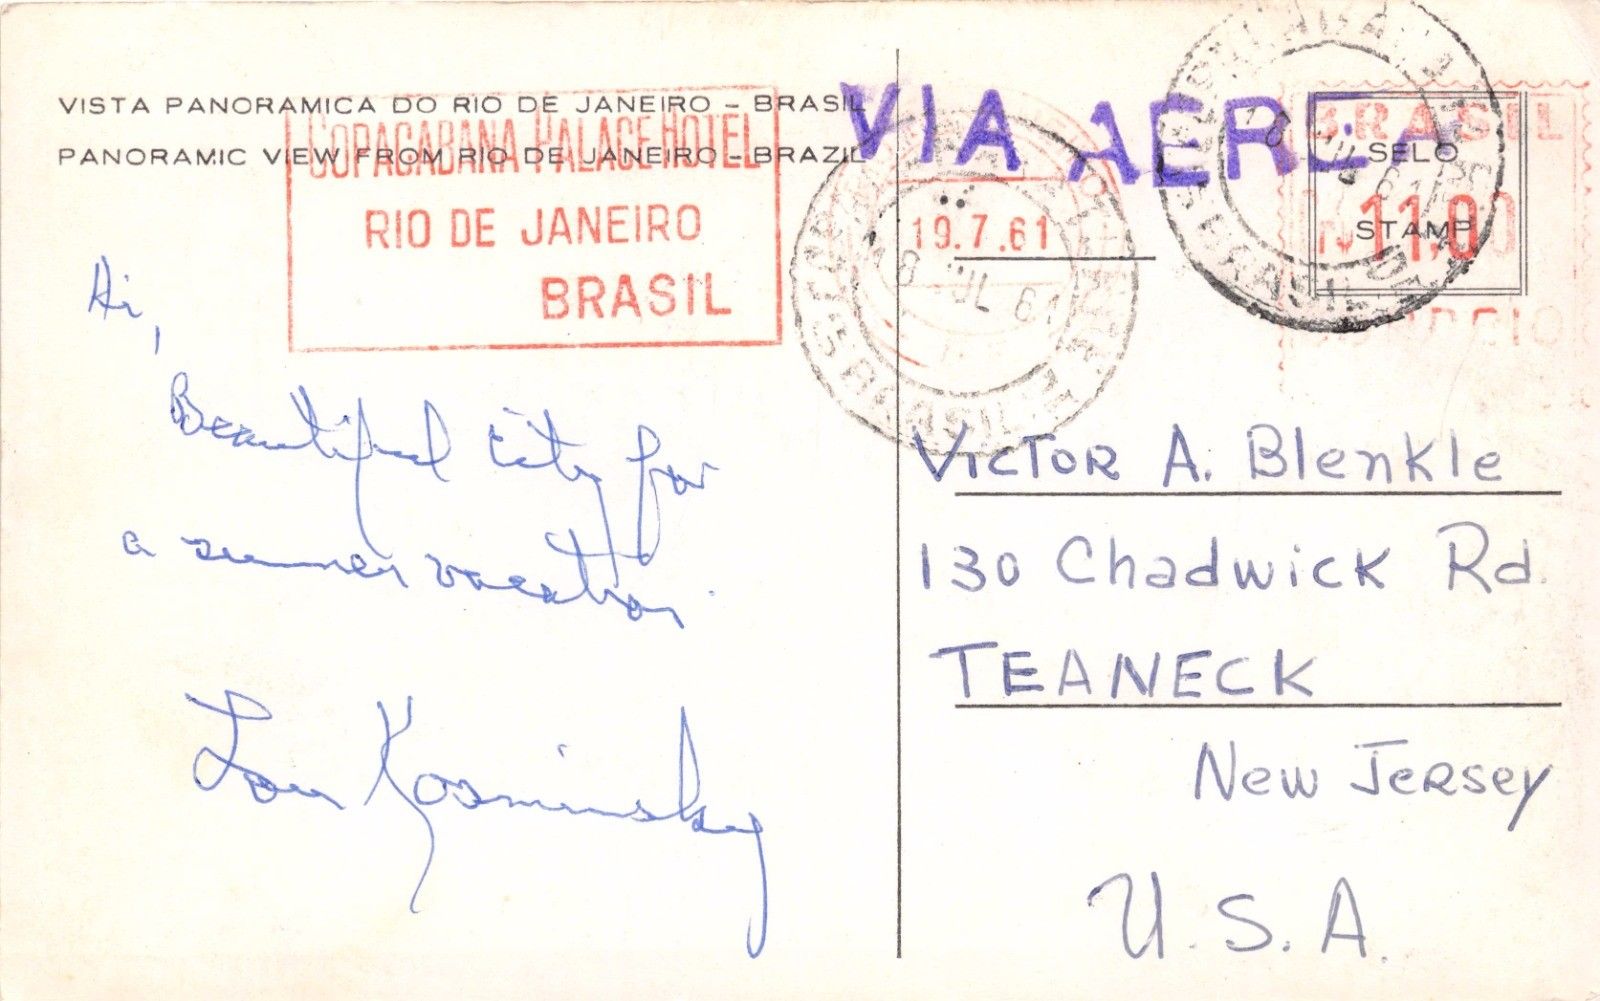 VISTA PANORAMICA DO RIO DE JANEIRO – BRASIL
PANORAMIC VIEW FROM RIO DE JANEIRO – BRAZIL
COPACABANA PALACE HOTEL
RIO DE JANEIRO
BRASIL
VIA AEREA
19.7.61
18 JUL 61
BRASIL
BRASIL
SELO
STAMP
11,00
CORREIO
BRASIL
Hi,
Beautiful city for
a summer vacation
Lou Kosminsky
VICTOR A. Blenkle
130 Chadwick Rd.
TEANECK
New Jersey
U.S.A.